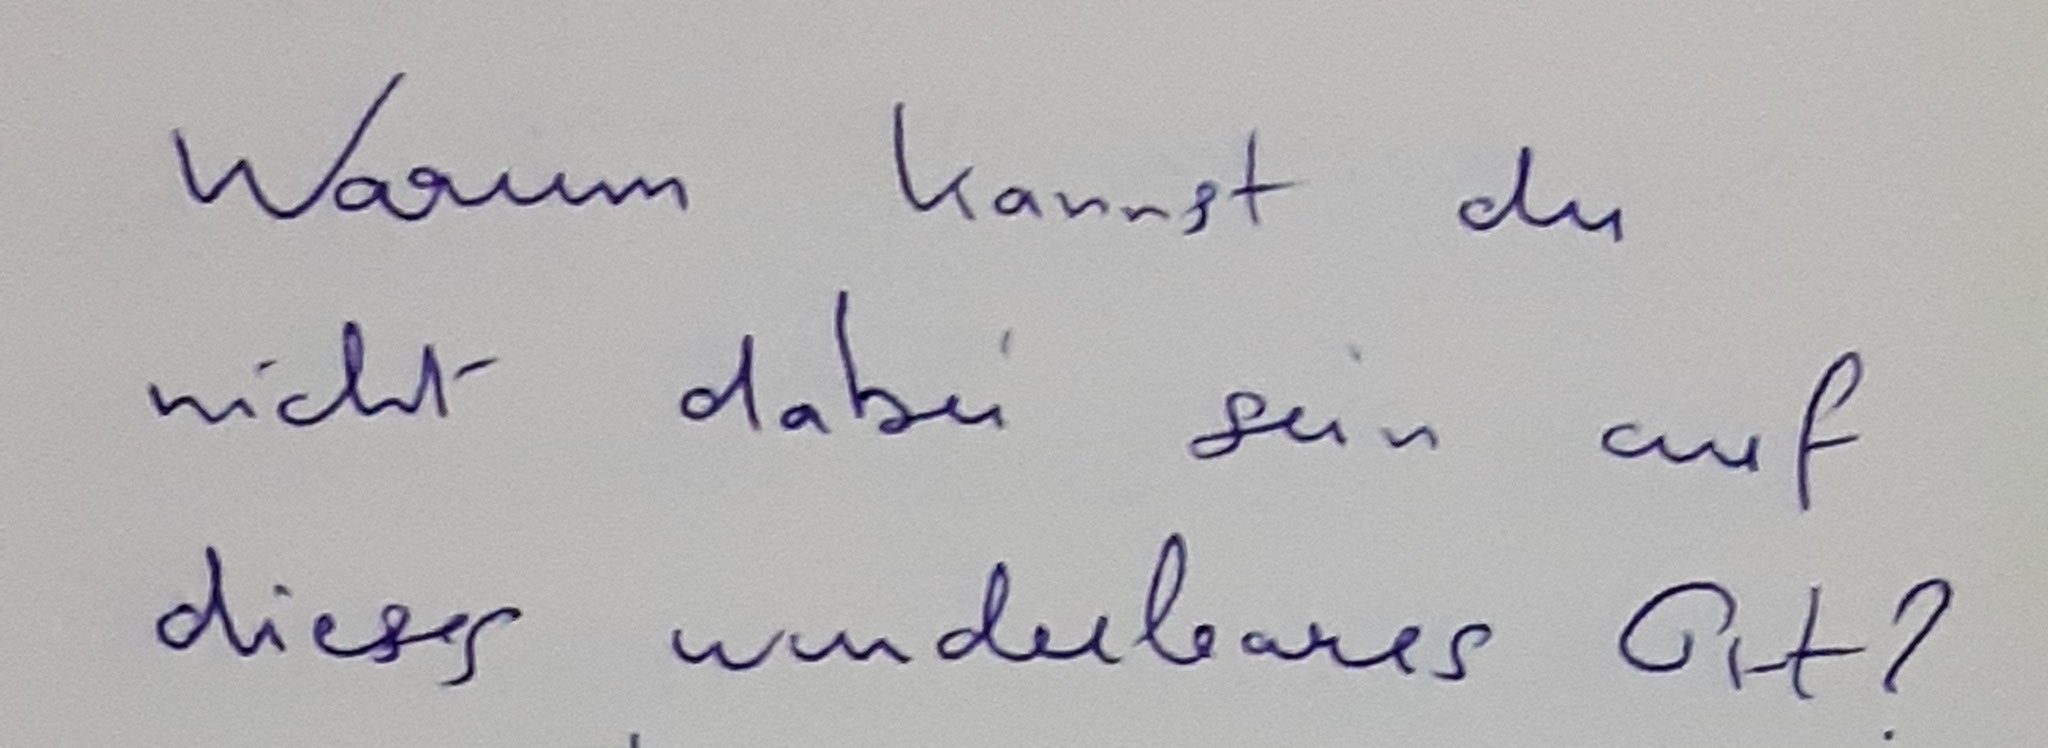 Warum kannst du
nicht dabei sein auf
dieses wunderbares Ort?